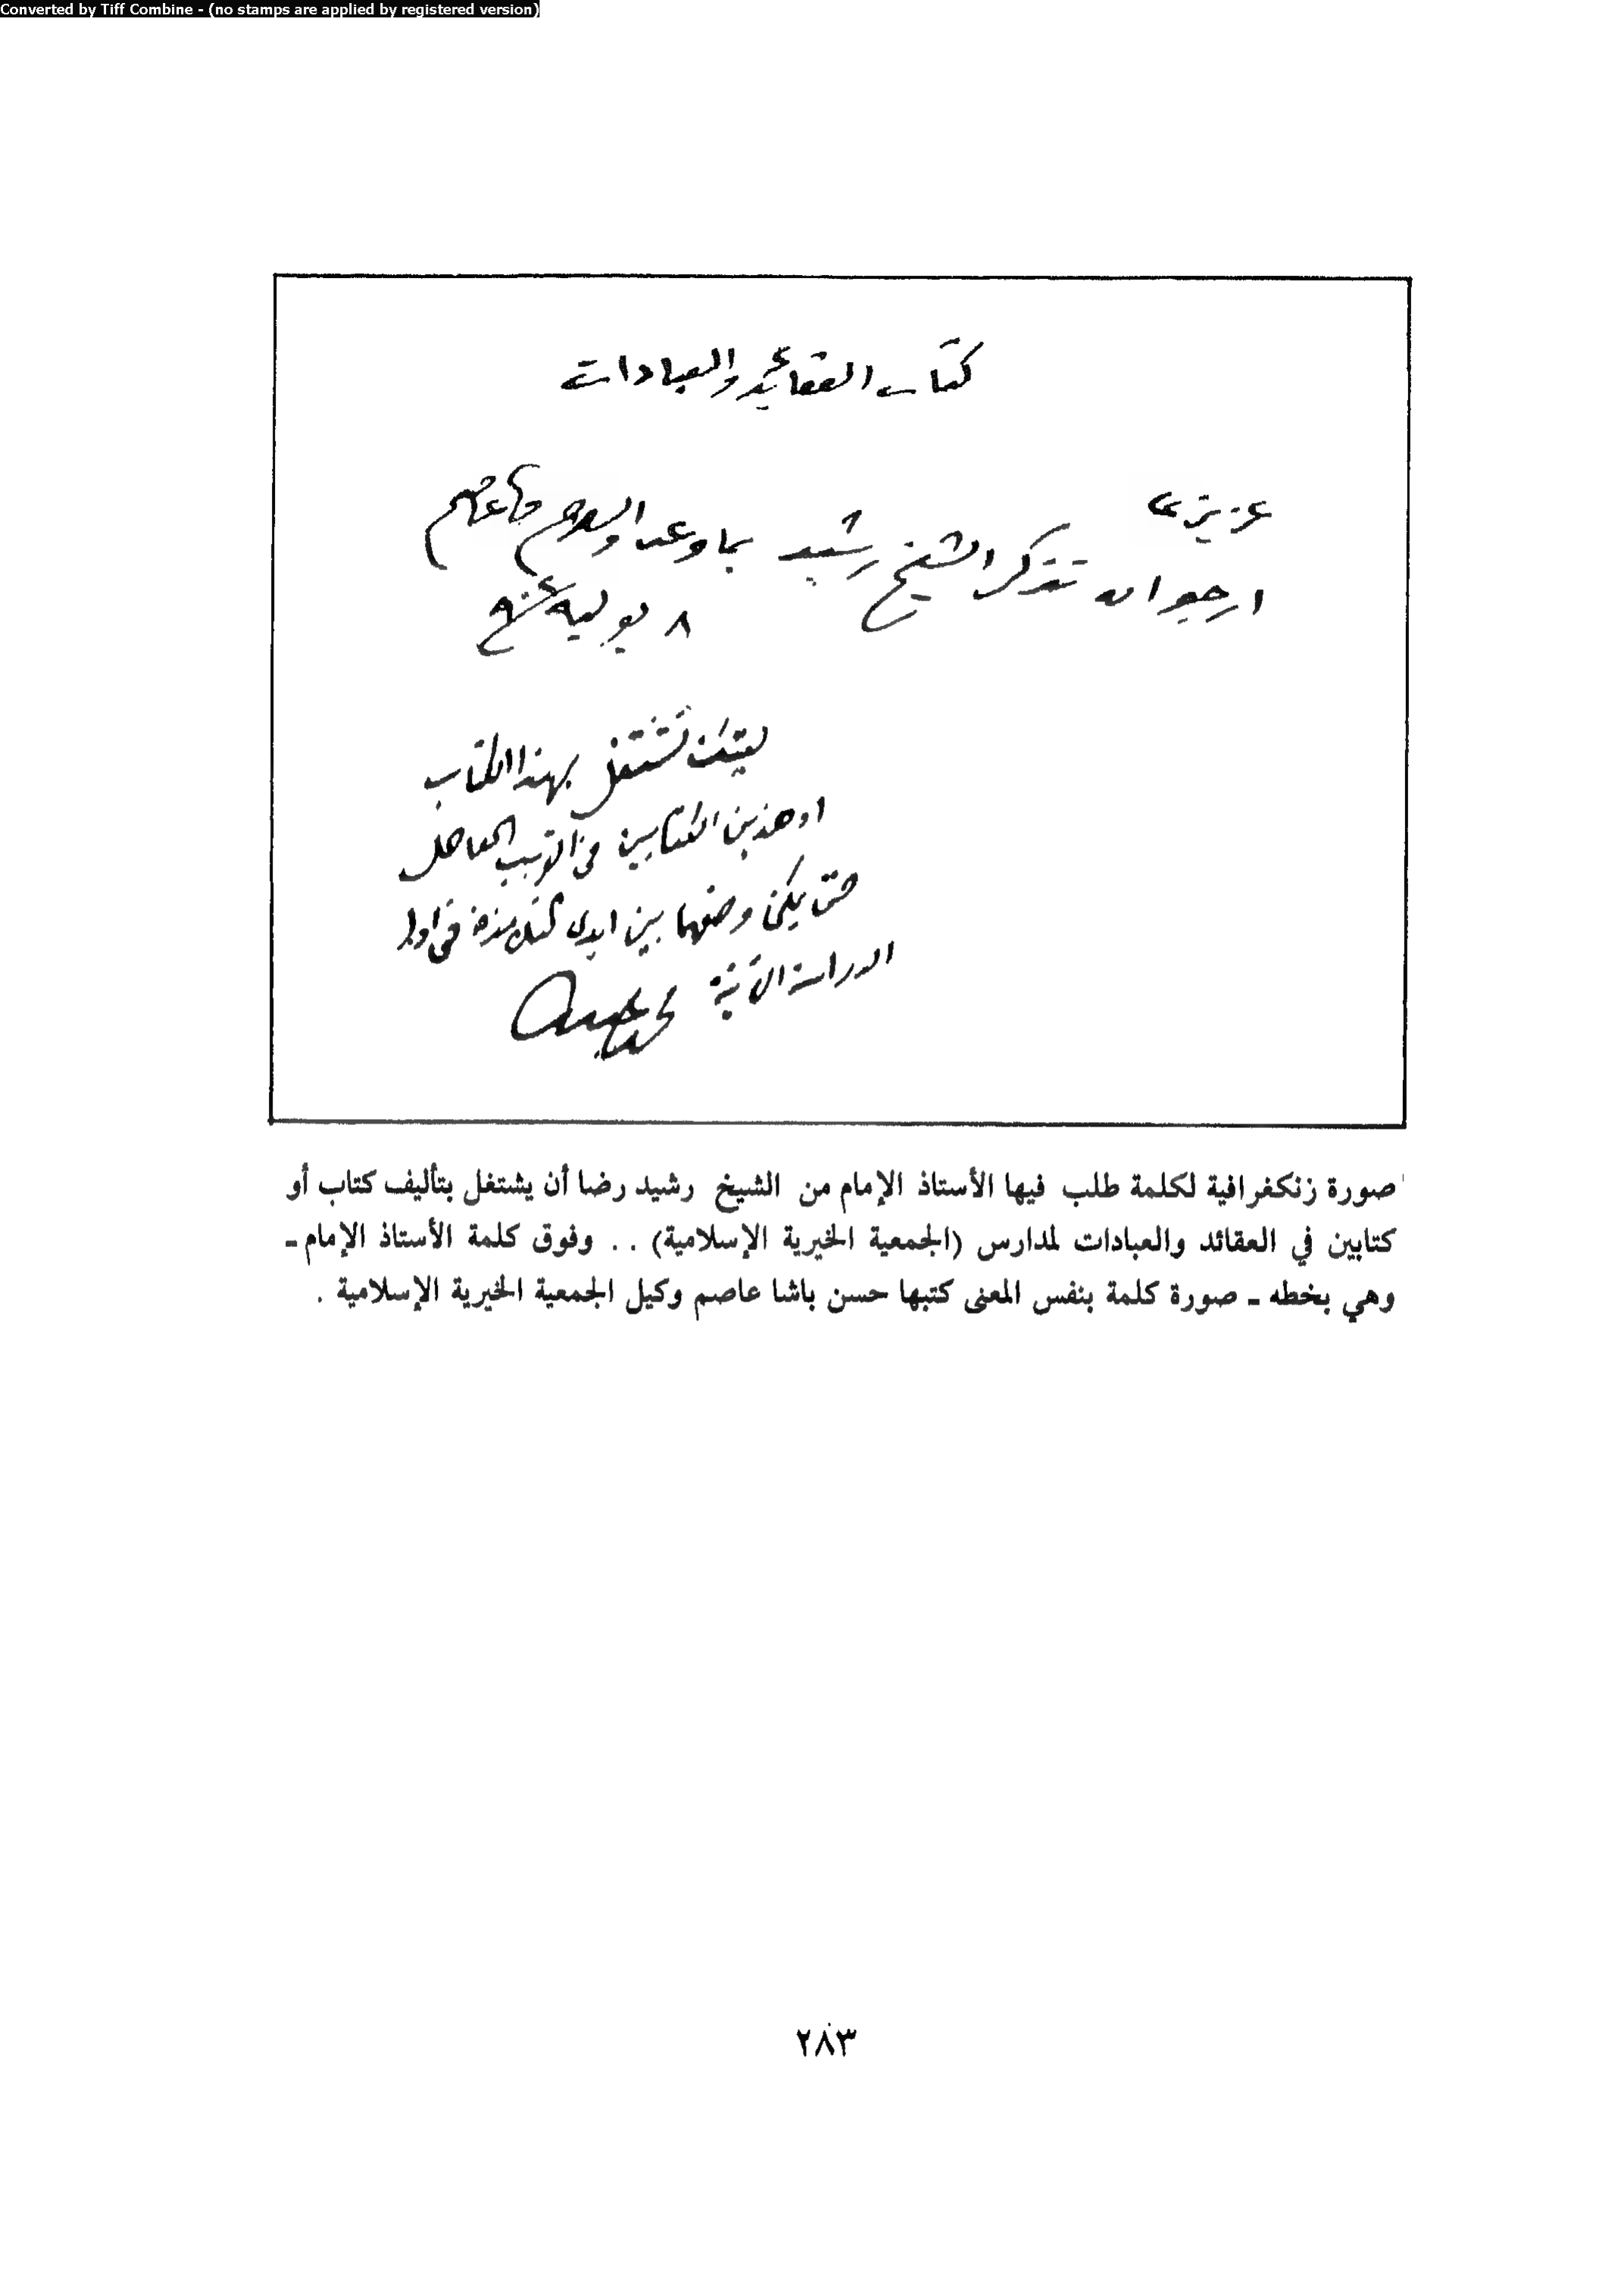 Converted by Tiff Combine - (no stamps are applied by registered version)
كتاب العقائد والعبادات
عزيزي
ارجو ان تذكر الشيخ رشيد بما وعد والسلام عاصم
٨ يوليه
ليتك تشتغل بهذا الكتاب
او هذين الكتابين في القريب العاجل
حتى يمكن وضعهما بين ايدي التلامذة في اول
الدراسة الآتية محمد عبده
صورة زنكغرافية لكلمة طلب فيها الأستاذ الإمام من الشيخ رشيد رضا أن يشتغل بتأليف كتاب أو
كتابين في العقائد والعبادات لمدارس (الجمعية الخيرية الإسلامية) . . وفوق كلمة الأستاذ الإمام ـ
وهي بخطه ـ صورة كلمة بنفس المعنى كتبها حسن باشا عاصم وكيل الجمعية الخيرية الإسلامية .
٢٨٣